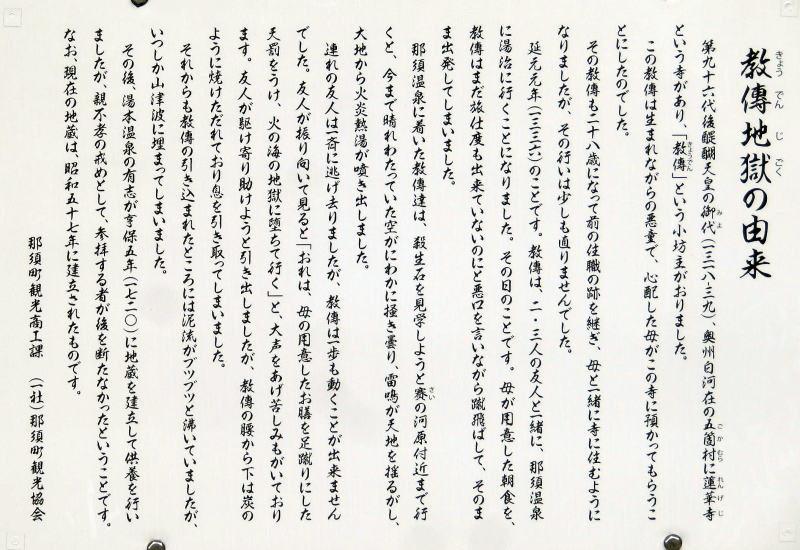 教傳地獄の由来
きょうでんじごく
第九十六代後醍醐天皇の御代（一三一八-三九）、奥州白河在の五箇村に蓮華寺
みよ
ごかむられんげじ
という寺があり、「教傳」という小坊主がおりました。
きょうでん
この教傳は生まれながらの悪童で、心配した母がこの寺に預かってもらうこ
とにしたのでした。
その教傳も二十八歳になって前の住職の跡を継ぎ、母と一緒に寺に住むように
なりましたが、その行いは少しも直りませんでした。
延元元年（一三三六）のことです。教傳は、二・三人の友人と一緒に、那須温泉
に湯治に行くことになりました。その日のことです。母が用意した朝食を、
教傳はまだ旅仕度も出来ていないのにと悪口を言いながら蹴飛ばして、そのま
ま出発してしまいました。
那須温泉に着いた教傳達は、殺生石を見学しようと賽の河原付近まで行
さい
くと、今まで晴れわたっていた空がにわかに掻き曇り、雷鳴が天地を揺るがし、
大地から火炎熱湯が噴き出しました。
連れの友人は一斉に逃げ去りましたが、教傳は一歩も動くことが出来ません
でした。友人が振り向いて見ると「おれは、母の用意したお膳を足蹴りにした
天罰をうけ、火の海の地獄に堕ちて行く」と、大声をあげ苦しみもがいており
ます。友人が駆け寄り助けようと引き出しましたが、教傳の腰から下は炭の
ように焼けただれており息を引き取ってしまいました。
それからも教傳の引き込まれたところには泥流がブツブツと沸いていましたが、
いつしか山津波に埋まってしまいました。
その後、湯本温泉の有志が享保五年（一七二〇）に地蔵を建立して供養を行い
ましたが、親不孝の戒めとして、参拝する者が後を断たなかったということです。
なお、現在の地蔵は、昭和五十七年に建立されたものです。
那須町観光商工課 （一社）那須町観光協会